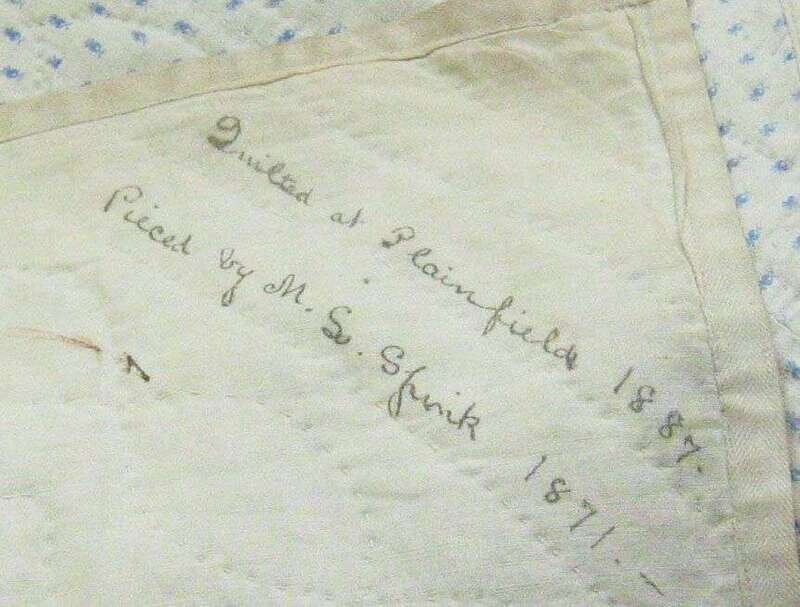 Quilted at Plainfield 1887.
Pieced by M. S. Spink 1871.-